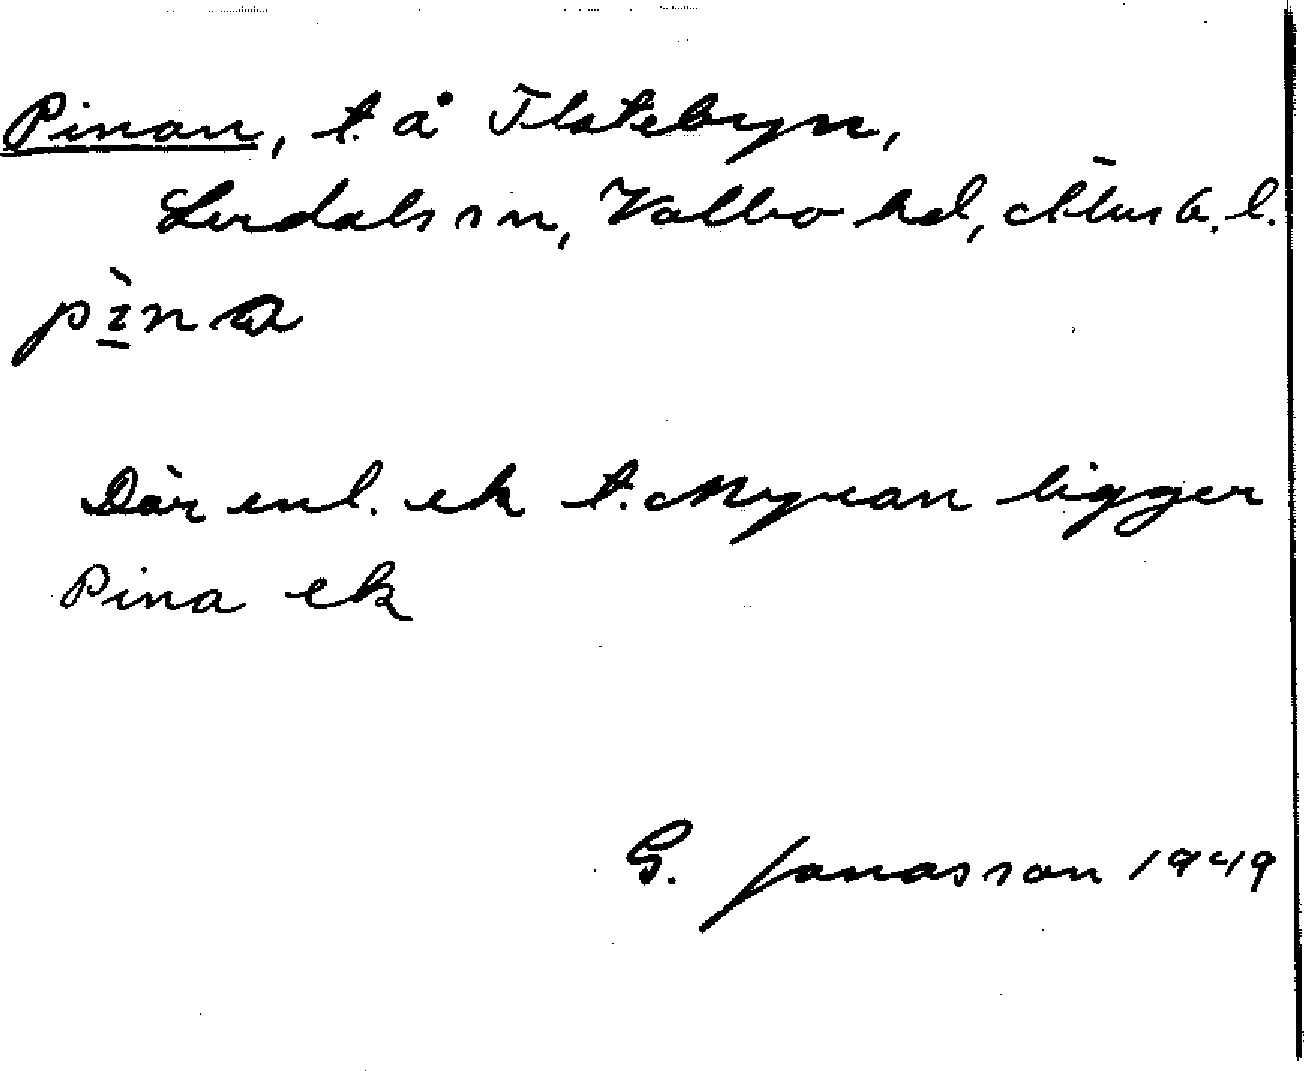 Pinan, t. å Flatebyn,
Lerdals sn, Valbo hd, Älvsb. l.
pìna
Där enl. ek t. Myran ligger
Pina ek
G. Jonasson 1949